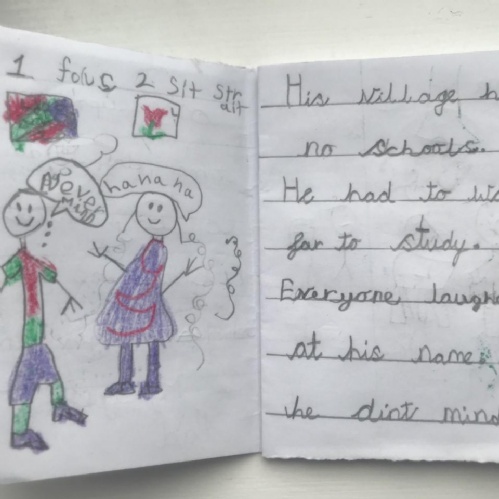 1 focus 2 sit str
ait
Never
mind
hahaha
His village h
no schools.
He had to w
far to study.
Everyone laugh
at his name.
he dint mind